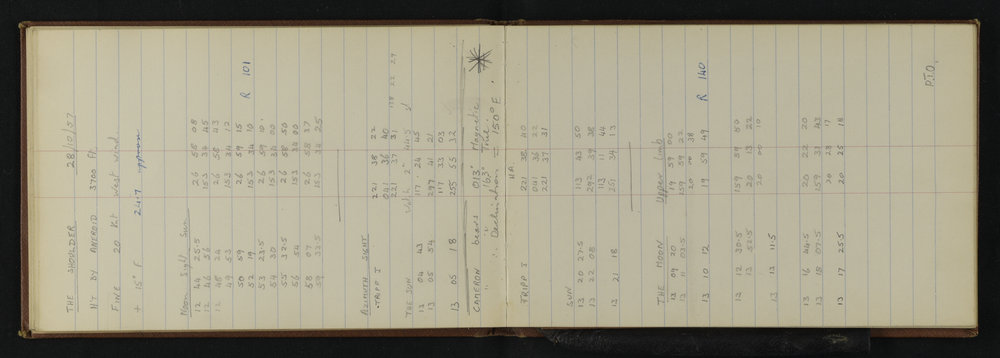 THE SHOULDER 28/10/57
H't BY ANEROID 3700 ft
FINE 20 Kt West wind.
+ 15° F 2417 approx
Moon Sight Sun
12 44 25.5 26 58 08
12 46 56 153 34 45
12 48 24 26 58 43
49 53 153 34 12
50 59 26 59 15
R 101
52 19 153 34 10
53 23.5 26 59 10
54 30 153 34 00
55 32.5 26 58 50
56 54 153 34 00
58 07 26 58 37
59 32.5 153 34 25
AZIMUTH SIGHT
TRIPP J 221 38 22
041 36 40
221 37 31 138 22 29
THE SUN
13 04 43 117 24 45
13 05 54 297 41 21
117 33 03
13 05 18 255 55 32
CAMERON bears 013° Magnetic
" " 163° True
∴ Declination = 150° E.
HA
TRIPP J 221 38 40
041 36 22
221 37 31
SUN
13 20 27.5 113 43 50
13 22 08 292 39 38
113 11 44
13 21 18 251 34 13
THE MOON Upper limb
13 09 20 19 59 00
13 11 03.5 159 59 22
20 00 38
13 10 12 19 59 49
R 140
13 12 30.5 159 59 50
13 52.5 20 13 22
20 00 10
13 13 11.5
13 16 44.5 20 22 20
13 18 07.5 159 31 43
20 28 17
13 17 25.5 20 25 18
P.T.O.